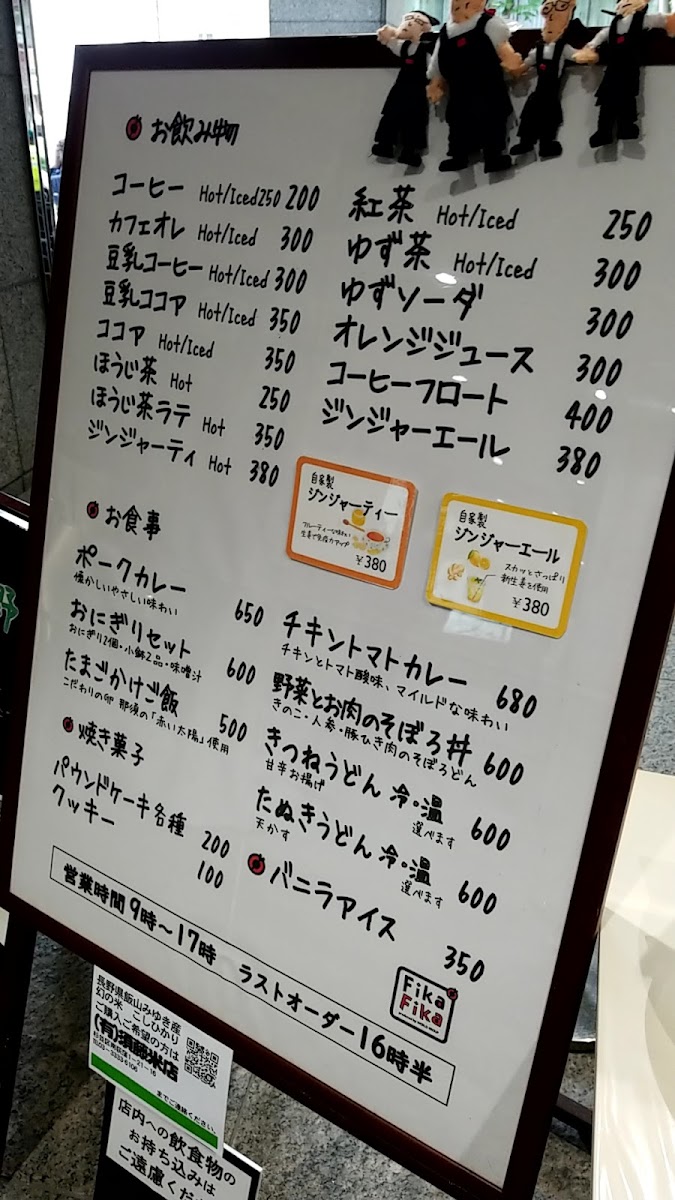 お飲み物
コーヒー Hot/Iced250 200
カフェオレ Hot/Iced 300
豆乳コーヒー Hot/Iced 300
豆乳ココア Hot/Iced 350
ココア Hot/Iced 350
ほうじ茶 Hot 250
ほうじ茶ラテ Hot 350
ジンジャーティ Hot 380
紅茶 Hot/Iced 250
ゆず茶 Hot/Iced 300
ゆずソーダ 300
オレンジジュース 300
コーヒーフロート 400
ジンジャーエール 380
自家製
ジンジャーティー
フルーティーな味わい
生姜で免疫力アップ
¥380
自家製
ジンジャーエール
スカッとさっぱり
新生姜を使用
¥380
お食事
ポークカレー 650
懐かしいやさしい味わい
おにぎりセット 600
おにぎり2個・小鉢2品・味噌汁
たまごかけご飯 500
こだわりの卵 那須の「赤い太陽」使用
チキントマトカレー 680
チキンとトマト酸味、マイルドな味わい
野菜とお肉のそぼろ丼 600
きのこ・人参・豚ひき肉のそぼろどん
きつねうどん 冷・温 600
甘辛お揚げ 選べます
たぬきうどん 冷・温 600
天かす 選べます
焼き菓子
パウンドケーキ各種 200
クッキー 100
バニラアイス 350
営業時間9時〜17時 ラストオーダー16時半
Fika
Fika
長野県飯山みゆき産
幻の米 こしひかり
ご購入ご希望の方は
(有)須藤米店
までご連絡ください。
店内への飲食物の
お持ち込みは
ご遠慮くだ